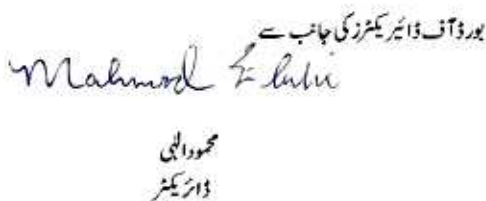 بورڈ آف ڈائیریکٹرز کی جانب سے
Mahmood Elahi
محمود الٰہی
ڈائریکٹر